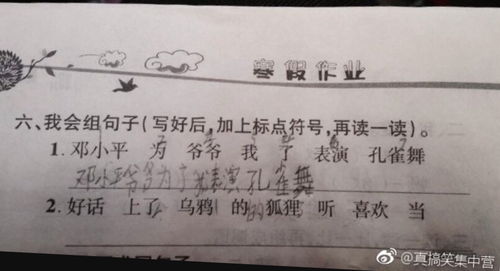 寒假作业
六、我会组句子(写好后,加上标点符号,再读一读)。
1. 邓小平 为 爷爷 我 了 表演 孔雀舞
邓小平爷爷为了我表演孔雀舞
2. 好话 上了 乌鸦 的 狐狸 听 喜欢 当
@真搞笑集中营